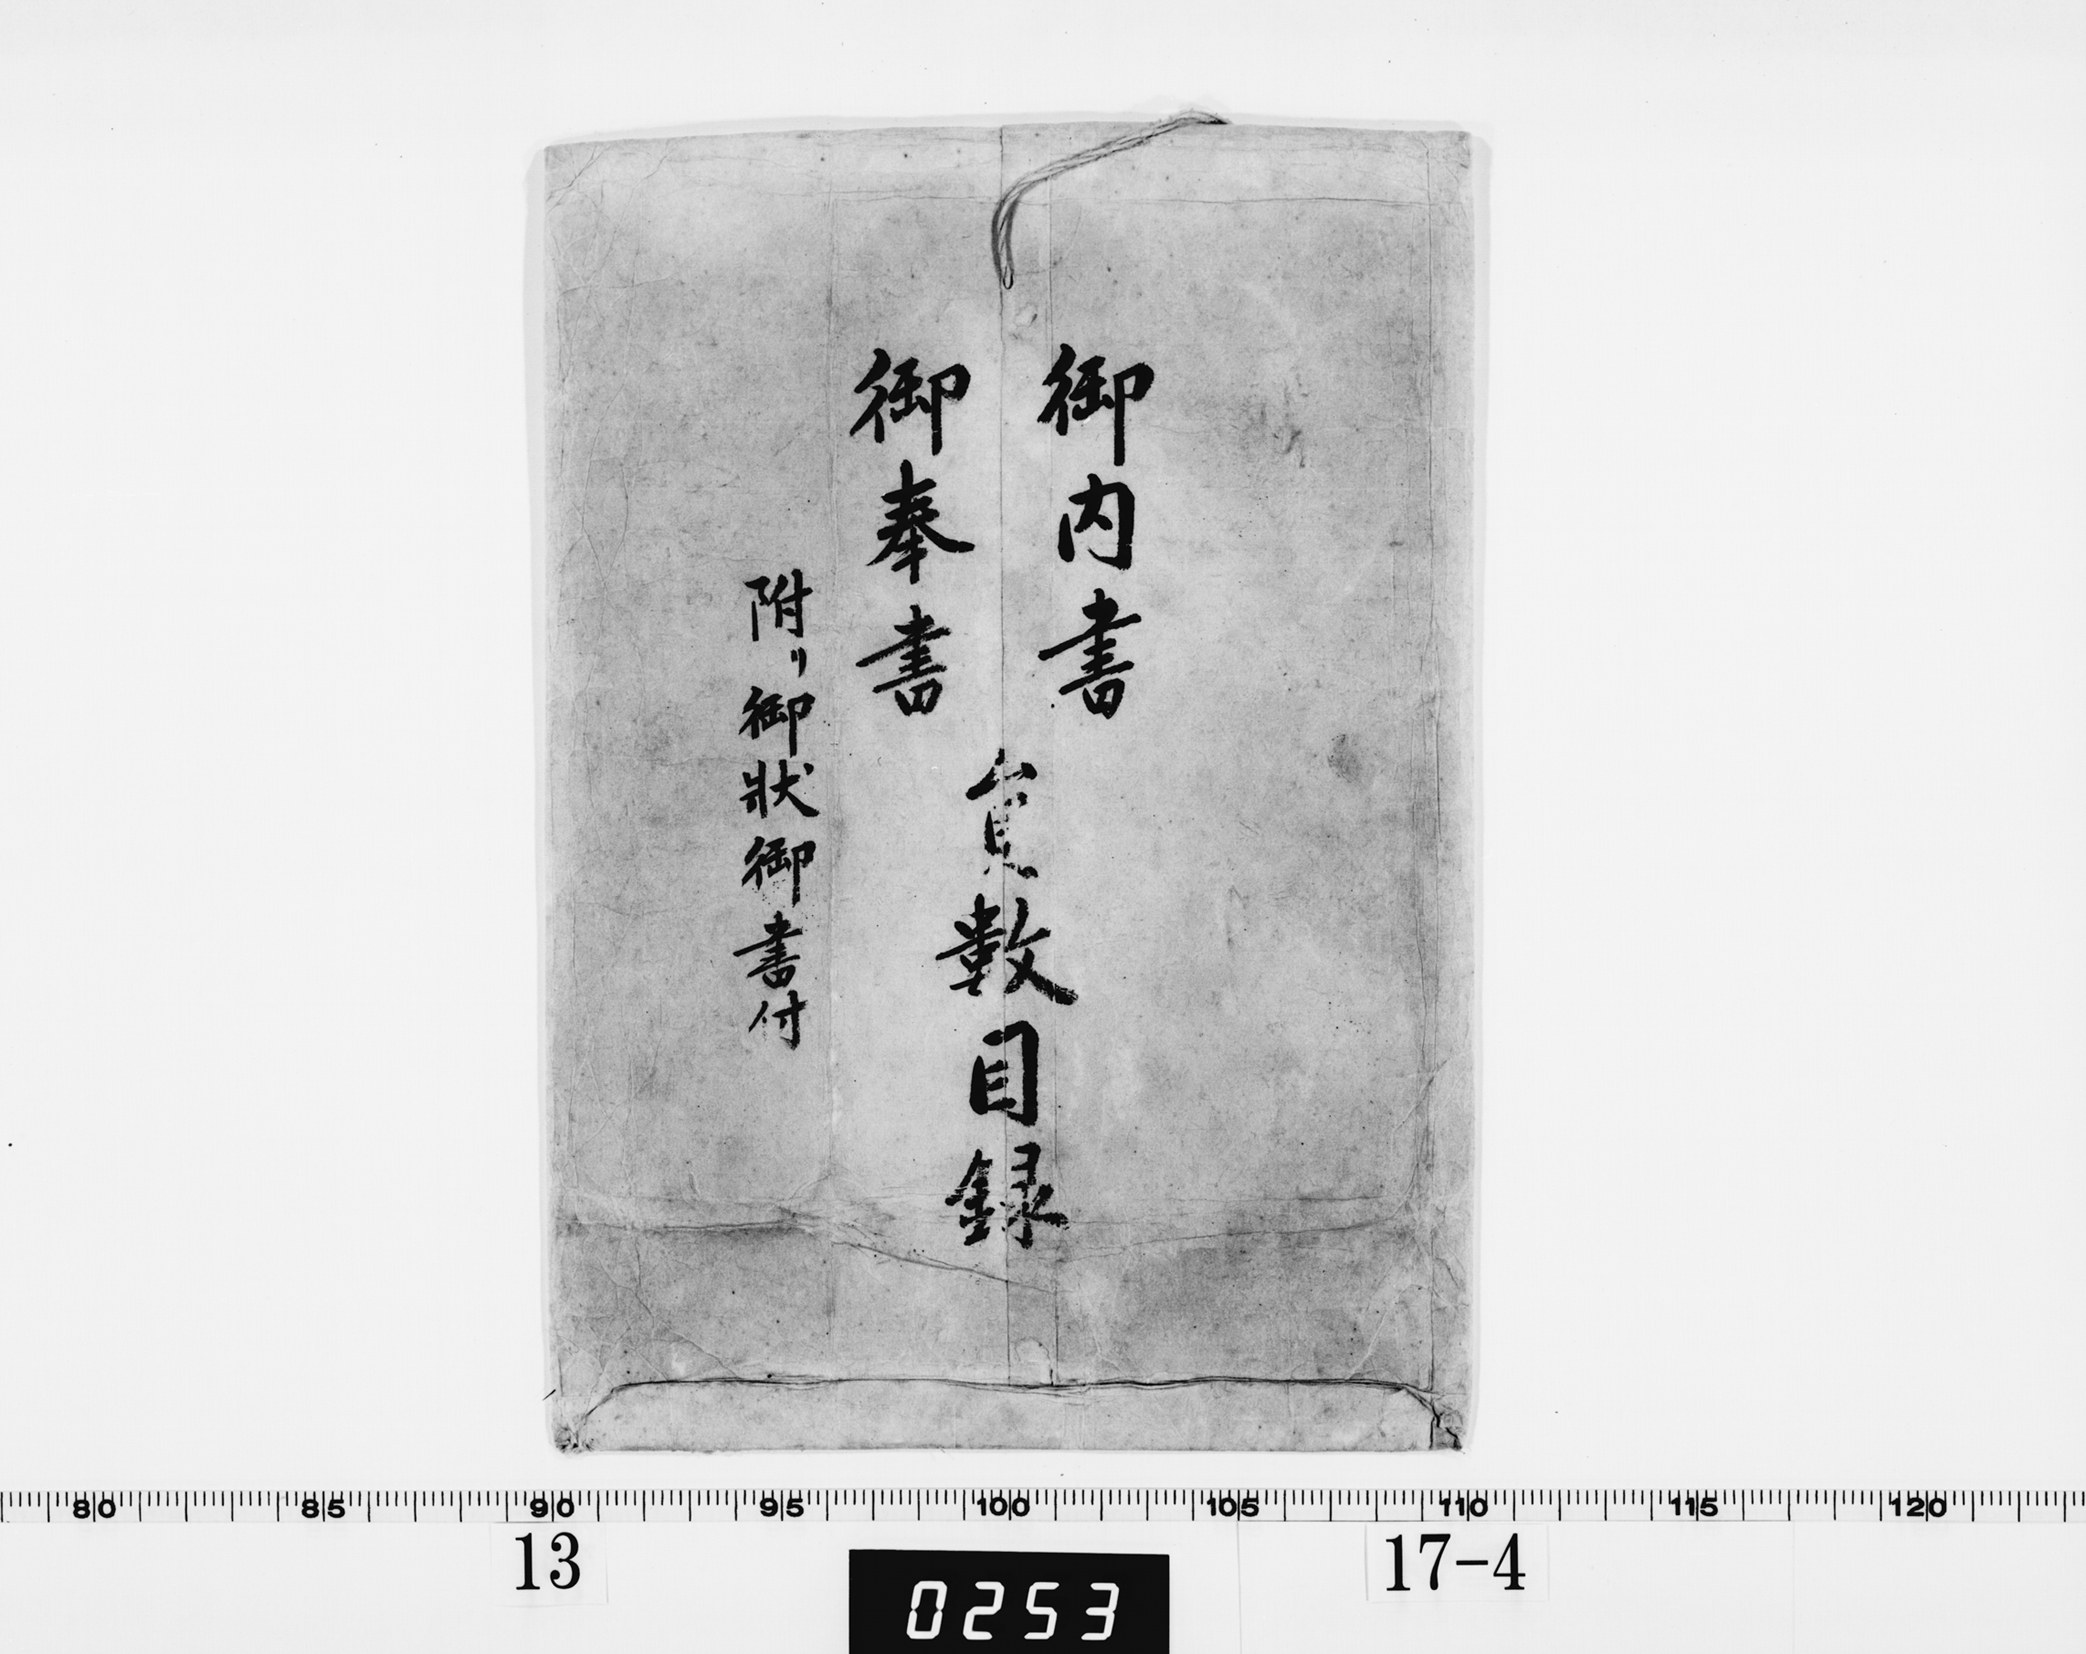 御内書
御奉書
員数目録
附リ御狀御書付
80 85 90 95 100 105 110 115 120
13
17-4
0253